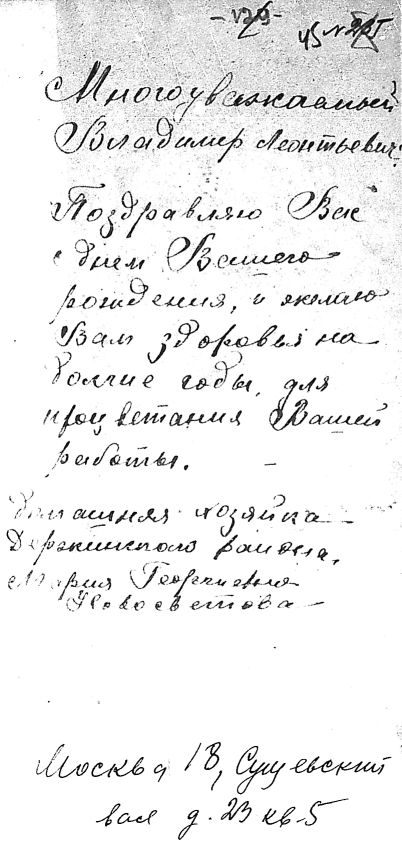 Многоуважаемый
Владимир Леонтьевич.
Поздравляю Вас
с днем Вашего
рождения, и желаю
Вам здоровья на
долгие годы, для
процветания Вашей
работы. —
Домашняя хозяйка
Дзержинского района,
Мария Георгиевна
Новосветова —
Москва 18, Сущевский
вал д. 23 кв. 5